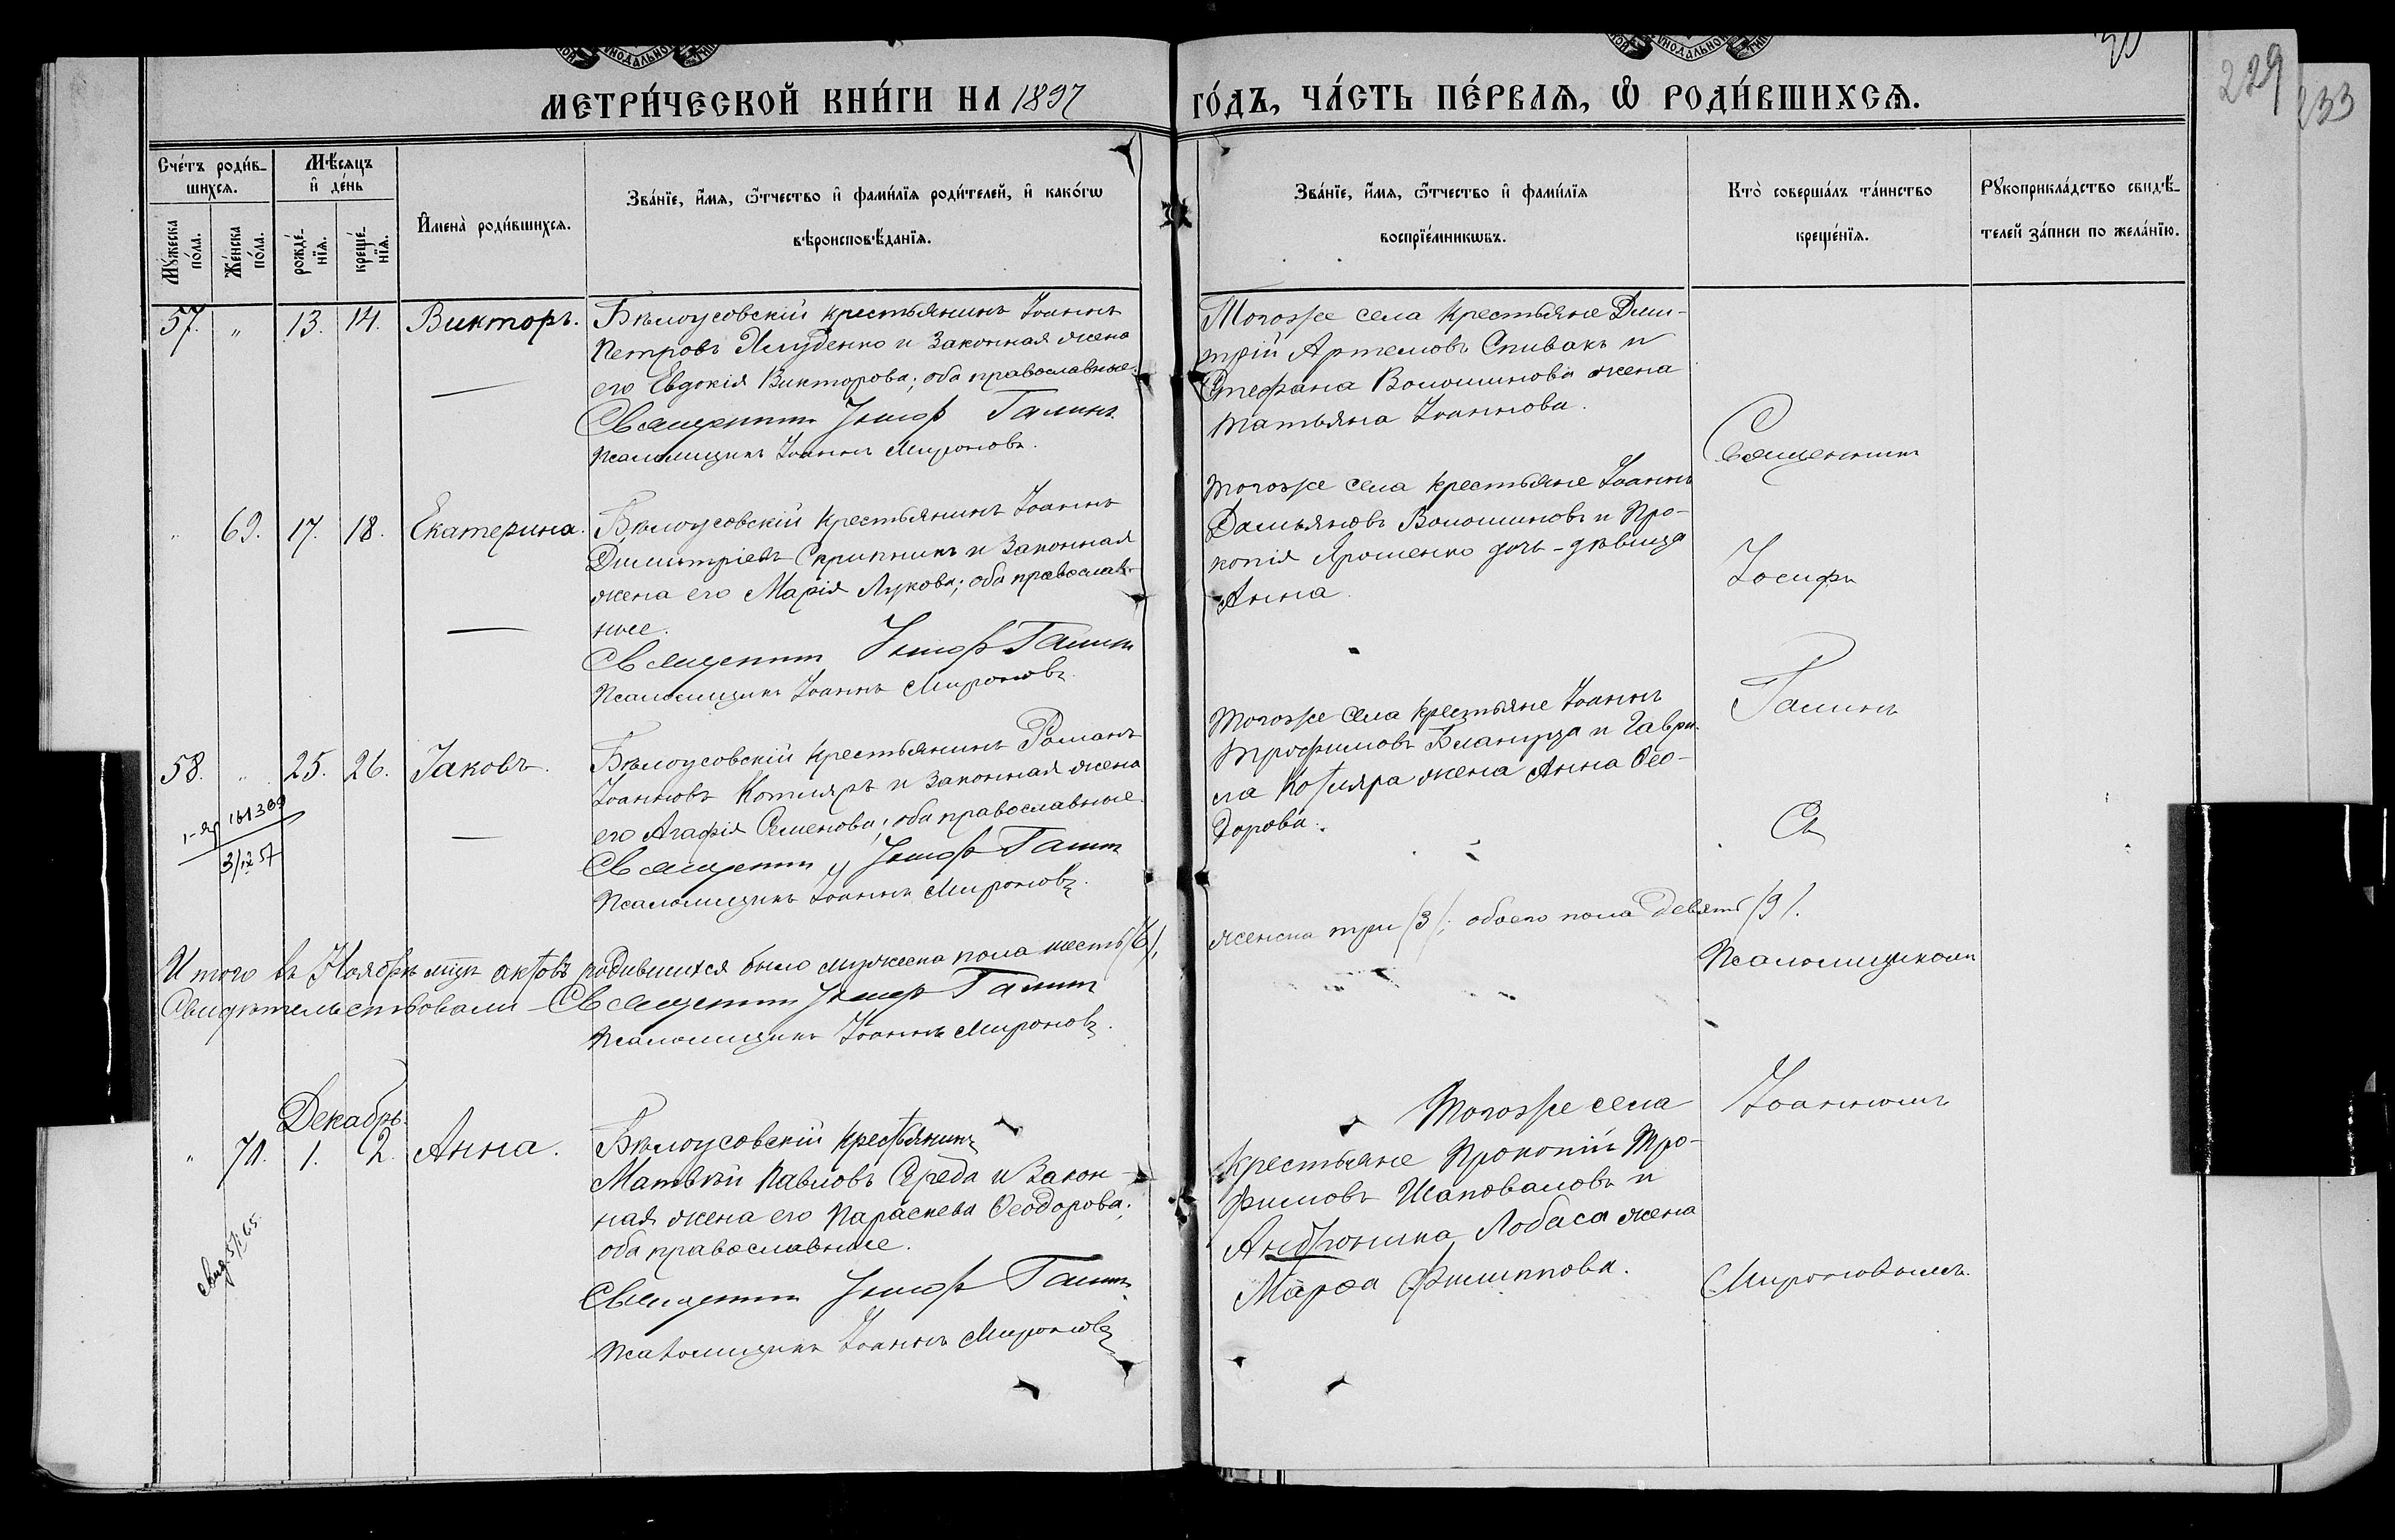 МЕТРИ́ЧЕСКОЙ КНИ́ГИ НА 1897 ГО́ДЪ, ЧА́СТЬ ПЕ́РВАѦ, Ѡ҆ РОДИ́ВШИХСѦ.
229
233
Сче́тъ роди́в-
шихсѧ.
Мꙋ́жеска по́ла.
Же́нска по́ла.
Мѣ́сѧцъ
и҆ де́нь
рожде́-нїѧ.
креще́-нїѧ.
И҆мена̀ роди́вшихсѧ.
Зва́нїе, и҆́мѧ, ѻ҆́тчество и҆ фами́лїѧ роди́телей, и҆ како́гѡ
вѣроисповѣ́данїѧ.
Зва́нїе, и҆́мѧ, ѻ҆́тчество и҆ фами́лїѧ
воспрїе́мникѡвъ.
Кто̀ соверша́лъ та́инство
креще́нїѧ.
Рꙋкоприкла́дство свидѣ́-
телей за́писи по жела́нїю.
57. " 13. 14. Викторъ.
Бѣлоусовскій крестьянинъ Іоаннъ
Петровъ и законная жена
его Евдокія Викторова; оба православные.
Священникъ Іосифъ Галинъ
Псаломщикъ Іоаннъ Мироновъ.
Тогоже села крестьяне Дими-
трій Артемовъ Спивакъ и
Стефана Волошинова жена
Татьяна Іоаннова.
" 69. 17. 18. Екатерина.
Бѣлоусовскій крестьянинъ Іоаннъ
Димитріевъ Скрипникъ и законная
жена его Марія Лукова; оба православ-
ные.
Священникъ Іосифъ Галинъ
Псаломщикъ Іоаннъ Мироновъ.
Тогоже села крестьяне Іоаннъ
Дамьяновъ Волошиновъ и Про-
копія Ярошенко дочь-дѣвица
Анна.
58. " 25. 26. Іаковъ.
Бѣлоусовскій крестьянинъ Романъ
Іоанновъ Котляръ и законная жена
его Агафія Семенова; оба православные.
Священникъ Іосифъ Галинъ
Псаломщикъ Іоаннъ Мироновъ.
Тогоже села крестьяне Іоаннъ
Трофимовъ и Гаври-
ла Котляра жена Анна Ѳео-
дорова.
Священникъ
Іосифъ
Галинъ
Съ
Псаломщикомъ
Іоанномъ
Мироновымъ.
Итого въ Ноябрѣ мцѣ актовъ родившихся было мужеска пола шесть /6/,
женска три /3/; обоего пола девять /9/.
Свидѣтельствовали - Священникъ Іосифъ Галинъ
Псаломщикъ Іоаннъ Мироновъ.
Декабрь.
" 70. 1. 2. Анна.
Бѣлоусовскій крестьянинъ
Матвѣй Павловъ Середа и закон-
ная жена его Параскева Ѳеодорова;
оба православные.
Священникъ Іосифъ Галинъ
Псаломщикъ Іоаннъ Мироновъ
Тогоже села
крестьяне Прокопій Тро-
фимовъ Шаповаловъ и
Андроника Лобаса жена
Марѳа Филиппова.